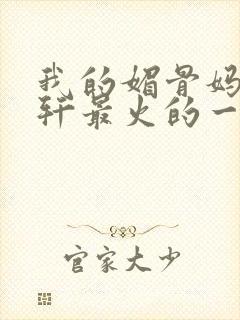 我的媚骨妈
轩最火的一
官家大少